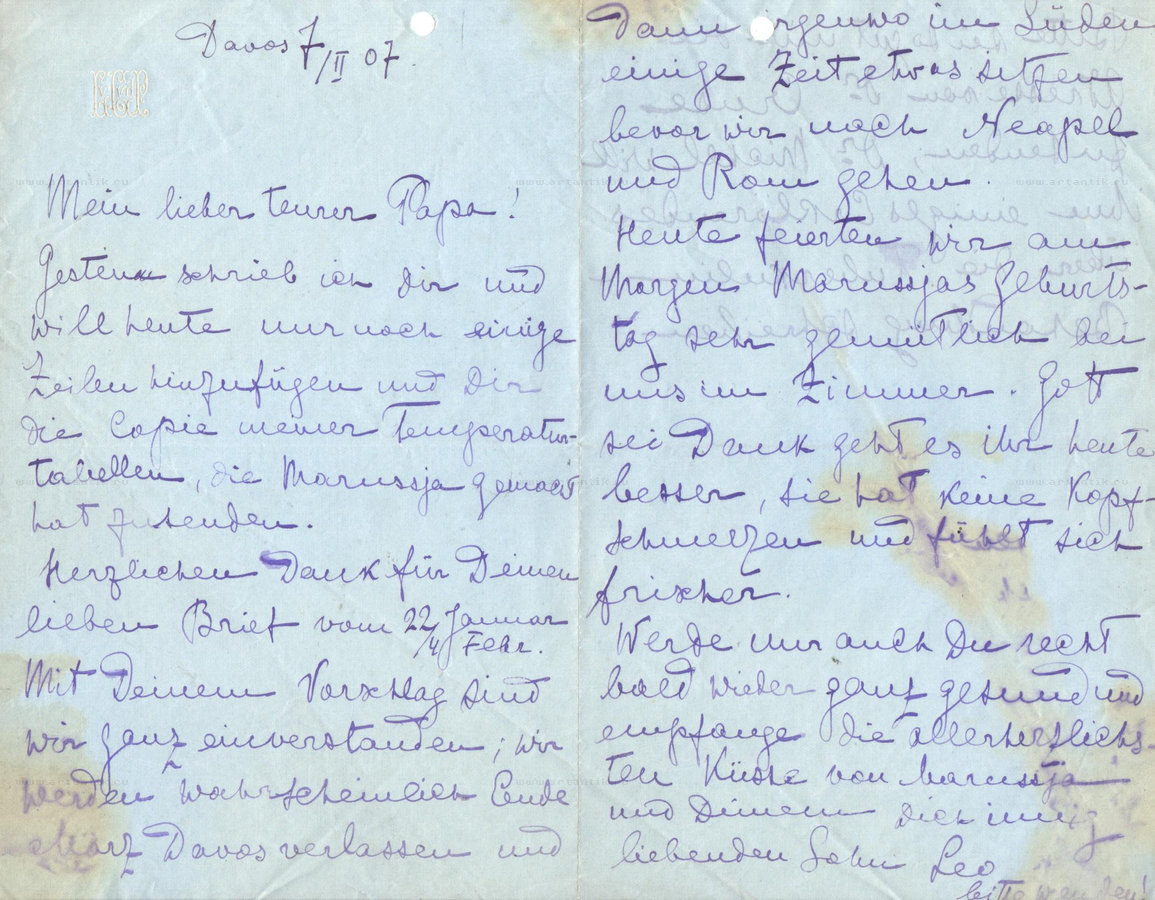 Davos 7/II 07.
Mein lieber teurer Papa!
Gestern schrieb ich dir und
will heute nur noch einige
Zeilen hinzufügen und Dir
die Copie meiner Temperatur-
tabellen, die Marussja gemacht
hat zusenden.
Herzlichen Dank für Deinen
lieben Brief vom 22 Januar
/4 Febr.
Mit Deinem Vorschlag sind
wir ganz einverstanden; wir
werden wahrscheinlich Ende
März Davos verlassen und
Dann irgenwo im Süden
einige Zeit etwas sitzen
bevor wir nach Neapel
und Rom gehen.
Heute feierten wir am
Morgen Marussjas Geburts-
tag sehr gemütlich bei
uns im Zimmer. Gott
sei Dank geht es ihr heute
besser, sie hat keine Kopf-
schmerzen und fühlt sich
frischer.
Werde nur auch Du recht
bald wieder ganz gesund und
empfange die allerherzlichs-
ten Küsse von Marussja
und Deinem dich innig
liebenden Sohn Leo
bitte wenden!
www.artantik.ru